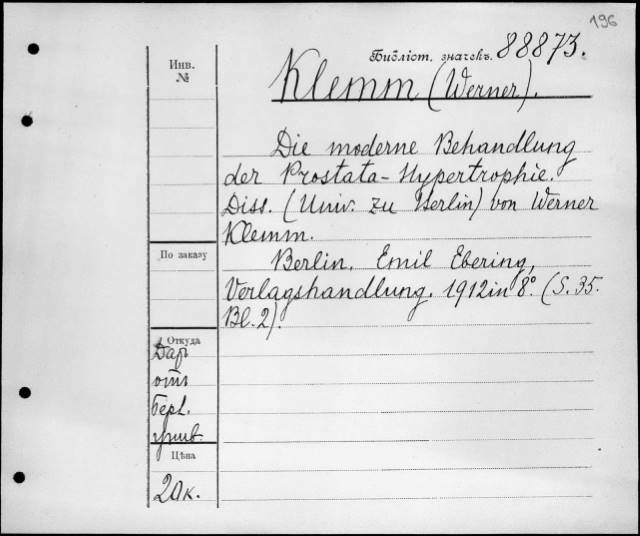 196
Библіот. значекъ. 88873.
Инв.
№
Klemm (Werner).
Die moderne Behandlung
der Prostata-Hypertrophie.
Diss. (Univ. zu Berlin) von Werner
Klemm.
По заказу
Berlin, Emil Ebering,
Verlagshandlung. 1912 in 8º. (S. 35.
Bl. 2).
Откуда
Даръ
отъ
Берл.
унив.
Цѣна
20 к.